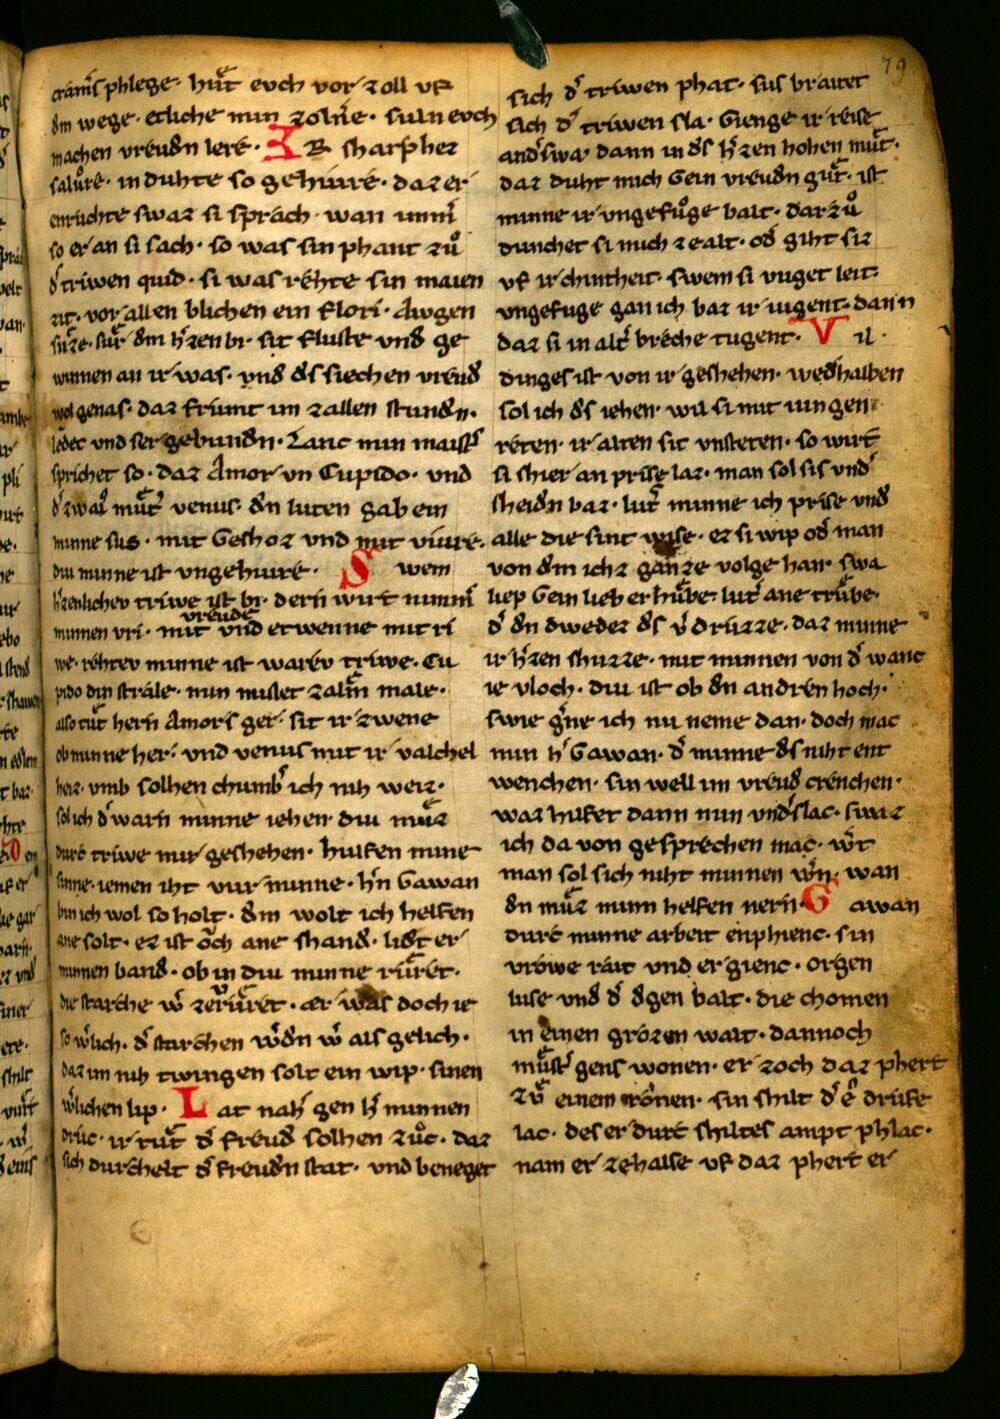 79
crams phlege · hůt evch vor zoll vf
dm wege · etliche min zolnͤe · suln evch
machen vreudn lere · I R sharphez
salure · in duhte so gehiure · daz er
enruchte swaz si sprach · wan immͤ
so er an si sach · so was sin phant zů
dͤ triwen quid · si was rehte sin maien
zit · vor allen blichen ein flori · Awgen
sůze · sur dm hͤzen bi · sit fluste vnd ge
winnen an ir was · vnd ds siechen vreud
wol genas · daz friunt im zallen stundn ·
ledec vnd ser gebundn · Lanc min maistͤ
sprichet so · daz Amor vn Cupido · vnd
dͤ zwaiͤ můtͤ venus · dn luten gab ein
minne sus · mit Geshoz vnd mit viure ·
diu minne ist vngehiure · S wem
hͤzenlicher triwe ist bi · dern wirt nimmͤ
minnen vri · mit vreude vnd etwenne mit ri
we · rehter minne ist warev triwe · Cu
pido din strale · min misset zalm male ·
also tůt hern Amors ger · sit ir zwene
ob minne her · vnd venus mit ir valchel
heiz · vmb solhen chumbͤ ich nih weiz ·
sol ich dͤ warn minne iehen · diu můz
durc triwe mir geshehen · hulfen mine
sinne · iemen iht vur minne · hn Gawan
bin ich wol so holt · dm wolt ich helfen
ane solt · ez ist och ane shand · ligt er
minnen band · ob in diu minne růret ·
die starche wͤ zerfůret · er was doch ie
so wͤlich · dͤ starchen wͤdn wͤ als gelich ·
daz im nih twingen solt ein wip · sinen
wͤlichen lip · L at nahͤ gen hͤ minnen
druc · ir tůt dͤ freud solhen zuc · daz
sich durchelt dͤ freudn stat · vnd beneget
sich dͤ triwen phat · sus braitet
sich dͤ triwen sla · Gienge ir reise
andͤswa · dann in ds hͤzen hohen můt ·
daz duht mich Gein vreudn gůt · ist
minne ir vngefůge balt · dar zů
dunchet si mich ze alt · od giht siz
vf ir chintheit · swem si vuget leit ·
vngefuge gan ich baz ir iugent · dann
daz si in altͤ breche tugent · V il
dinges ist von ir geshehen · wedhalben
sol ich ds iehen · wil si mit iungen
reten · ir alten sit vnsteten · so wirt
si shier an prise laz · man sol sis vndͤ
sheidn baz · lutͤ minne ich prise vnd
alle die sint wise · ez si wip od man
von dm ichz ganze volge han · swa
liep Gein lieb erhůbe · lutͤ ane trůbe ·
dͤ dn dweder ds vͤ druzze · daz minne
ir hͤzen shuzze · mit minnen von dͤ wanc
ie vloch · diu ist ob dn andren hoch ·
swie gͤne ich nu neme dan · doch mac
min hͤ Gawan · dͤ minne ds niht ent
wenchen · sin well im vreud crenchen ·
waz hilfet dann min vndͤslac · swaz
ich da von gesprechen mac · wͤt
man sol sich niht minnen wͤn · wan
dn můz minn helfen nern · G awan
durc minne arbeit enphienc · sin
vrowe rait vnd er gienc · Orgen
luse vnd dͤ dgen balt · die chomen
in einen grozen walt · dannoch
můstͤ gens wonen · er zoch daz phert
zů einem ronen · sin shilt dͤ e drufe
lac · des er durc shiltes ampt phlac ·
nam er zehalse vf daz phert er